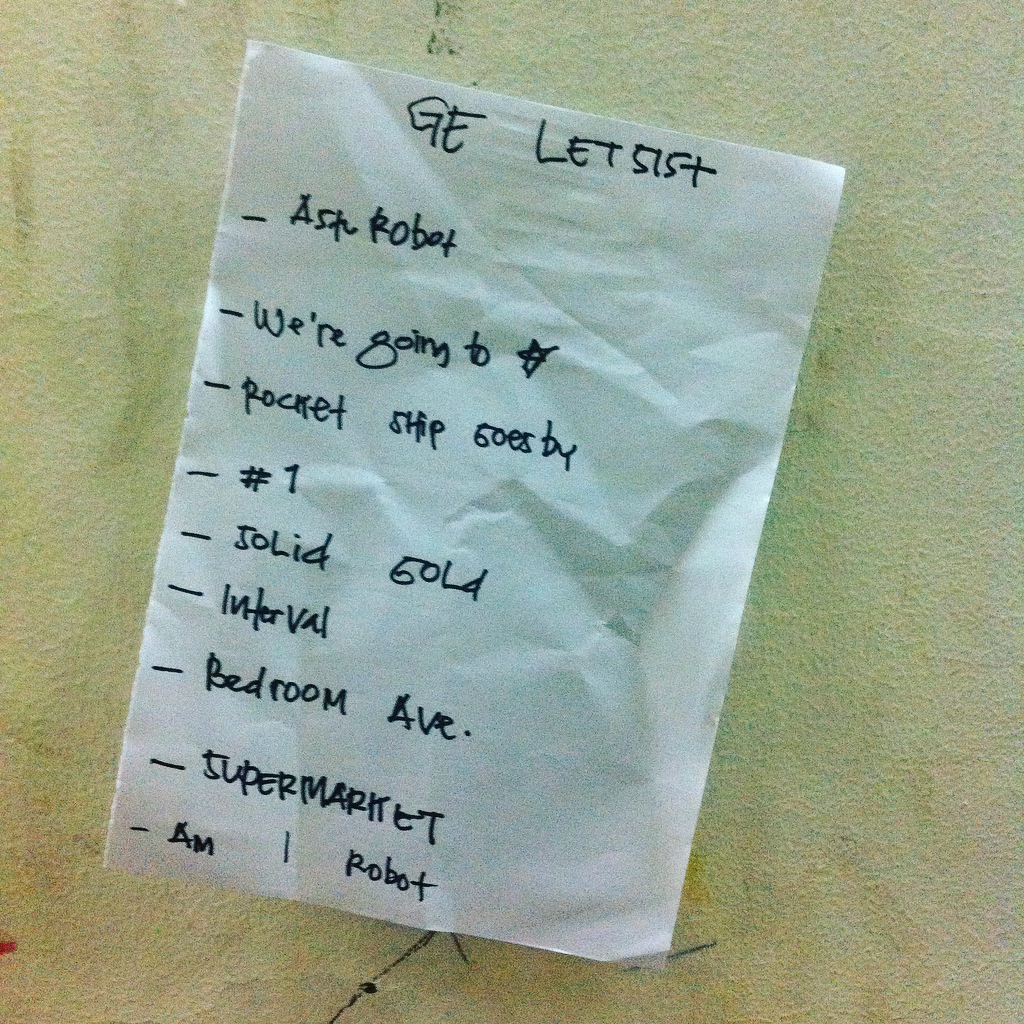 GE LETSIST
- Astr Robot
- We're going to ☆
- Rocket ship goes by
- #1
- Solid Gold
- Interval
- Bedroom Ave.
- SUPERMARKET
- Am I Robot